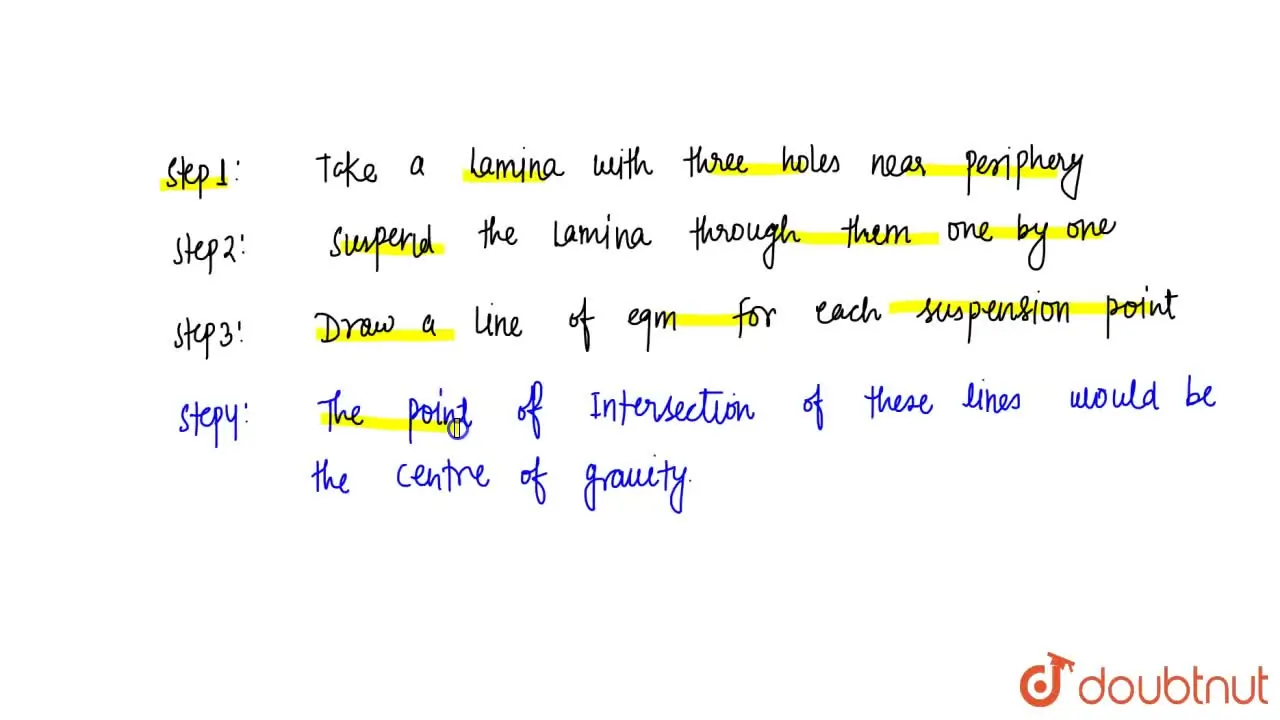 Step 1: Take a Lamina with three holes near periphery
Step 2: Suspend the Lamina through them one by one
Step 3: Draw a line of eqm for each suspension point
Step 4: The point of Intersection of these lines would be
the centre of gravity.
doubtnut